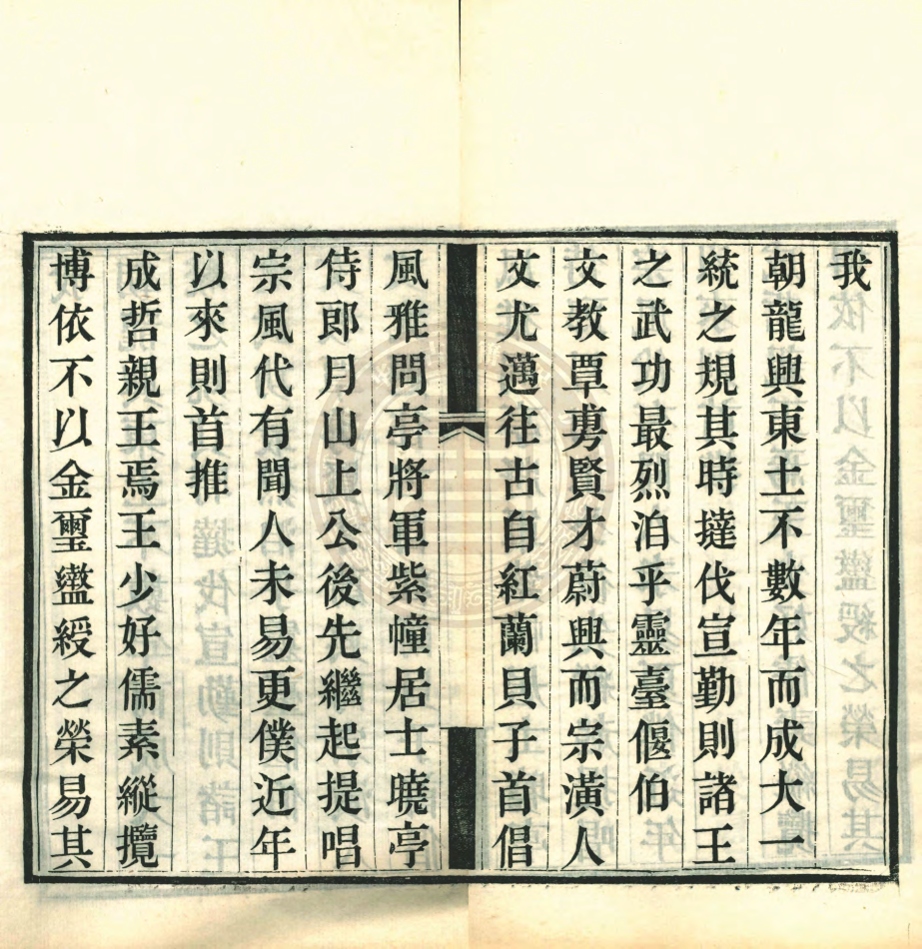 我
朝龍興東土不數年而成大一
統之規其時撻伐宣勤則諸王
之武功最烈洎乎靈臺偃伯
文教覃旉賢才蔚興而宗潢人
文尤邁往古自紅蘭貝子首倡
風雅問亭將軍紫幢居士曉亭
侍郎月山上公後先繼起提唱
宗風代有聞人未易更僕近年
以來則首推
成哲親王焉王少好儒素縱攬
博依不以金璽盭綬之榮易其